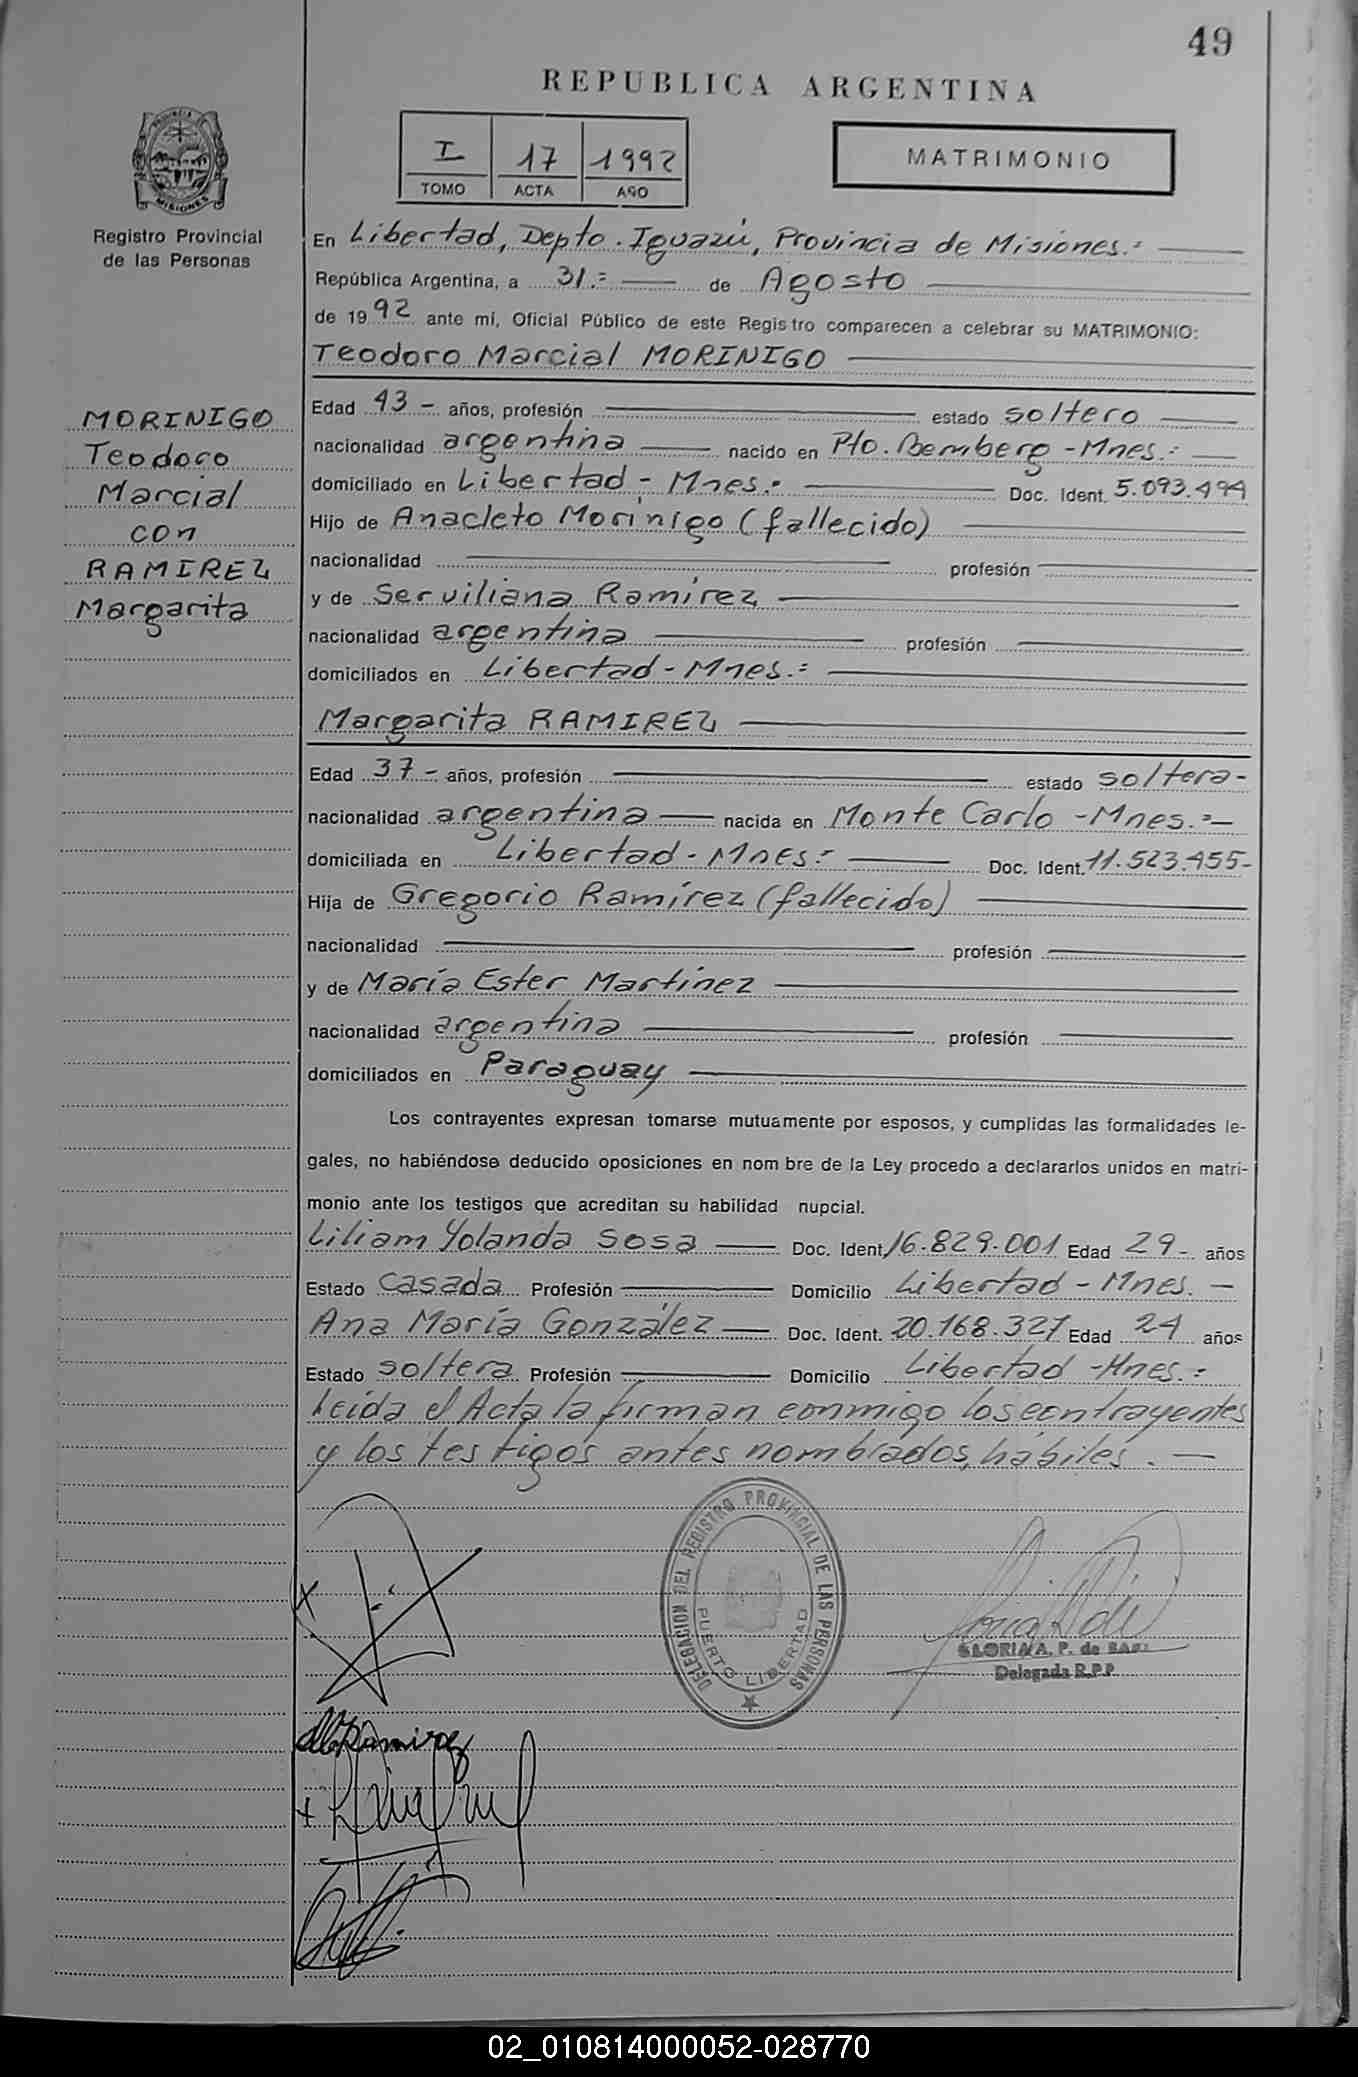 49
REPUBLICA ARGENTINA
I 17 1992
TOMO ACTA AÑO
MATRIMONIO
PROVINCIA MISIONES
Registro Provincial
de las Personas
En Libertad, Depto. Iguazú, Provincia de Misiones.=
República Argentina, a 31.= de Agosto
de 1992 ante mi, Oficial Público de este Registro comparecen a celebrar su MATRIMONIO:
Teodoro Marcial MORINIGO
MORINIGO
Teodoro
Marcial
con
RAMIREZ
Margarita
Edad 43 - años, profesión estado soltero
nacionalidad argentina nacido en Pto. Bemberg - Mnes.:
domiciliado en Libertad - Mnes.= Doc. Ident. 5.093.494
Hijo de Anacleto Morínigo (fallecido)
nacionalidad profesión
y de Serviliana Ramírez
nacionalidad argentina profesión
domiciliados en Libertad - Mnes.=
Margarita RAMIREZ
Edad 37 - años, profesión estado soltera -
nacionalidad argentina nacida en Monte Carlo - Mnes.=
domiciliada en Libertad - Mnes.= Doc. Ident. 11.523.455-
Hija de Gregorio Ramírez (fallecido)
nacionalidad profesión
y de María Ester Martínez
nacionalidad argentina profesión
domiciliados en Paraguay
Los contrayentes expresan tomarse mutuamente por esposos, y cumplidas las formalidades le-
gales, no habiéndose deducido oposiciones en nombre de la Ley procedo a declararlos unidos en matri-
monio ante los testigos que acreditan su habilidad nupcial.
Liliam Yolanda Sosa Doc. Ident. 16.829.001 Edad 29 - años
Estado Casada Profesión Domicilio Libertad - Mnes.
Ana María González Doc. Ident. 20.168.327 Edad 24 años
Estado soltera Profesión Domicilio Libertad - Mnes.=
Leída el Acta la firman conmigo los contrayentes
y los testigos antes nombrados, hábiles.
DELEGACION DEL REGISTRO PROVINCIAL DE LAS PERSONAS
PUERTO LIBERTAD
GLORIA A. P. de
Delegada R.P.P
Ramirez
02_010814000052-028770